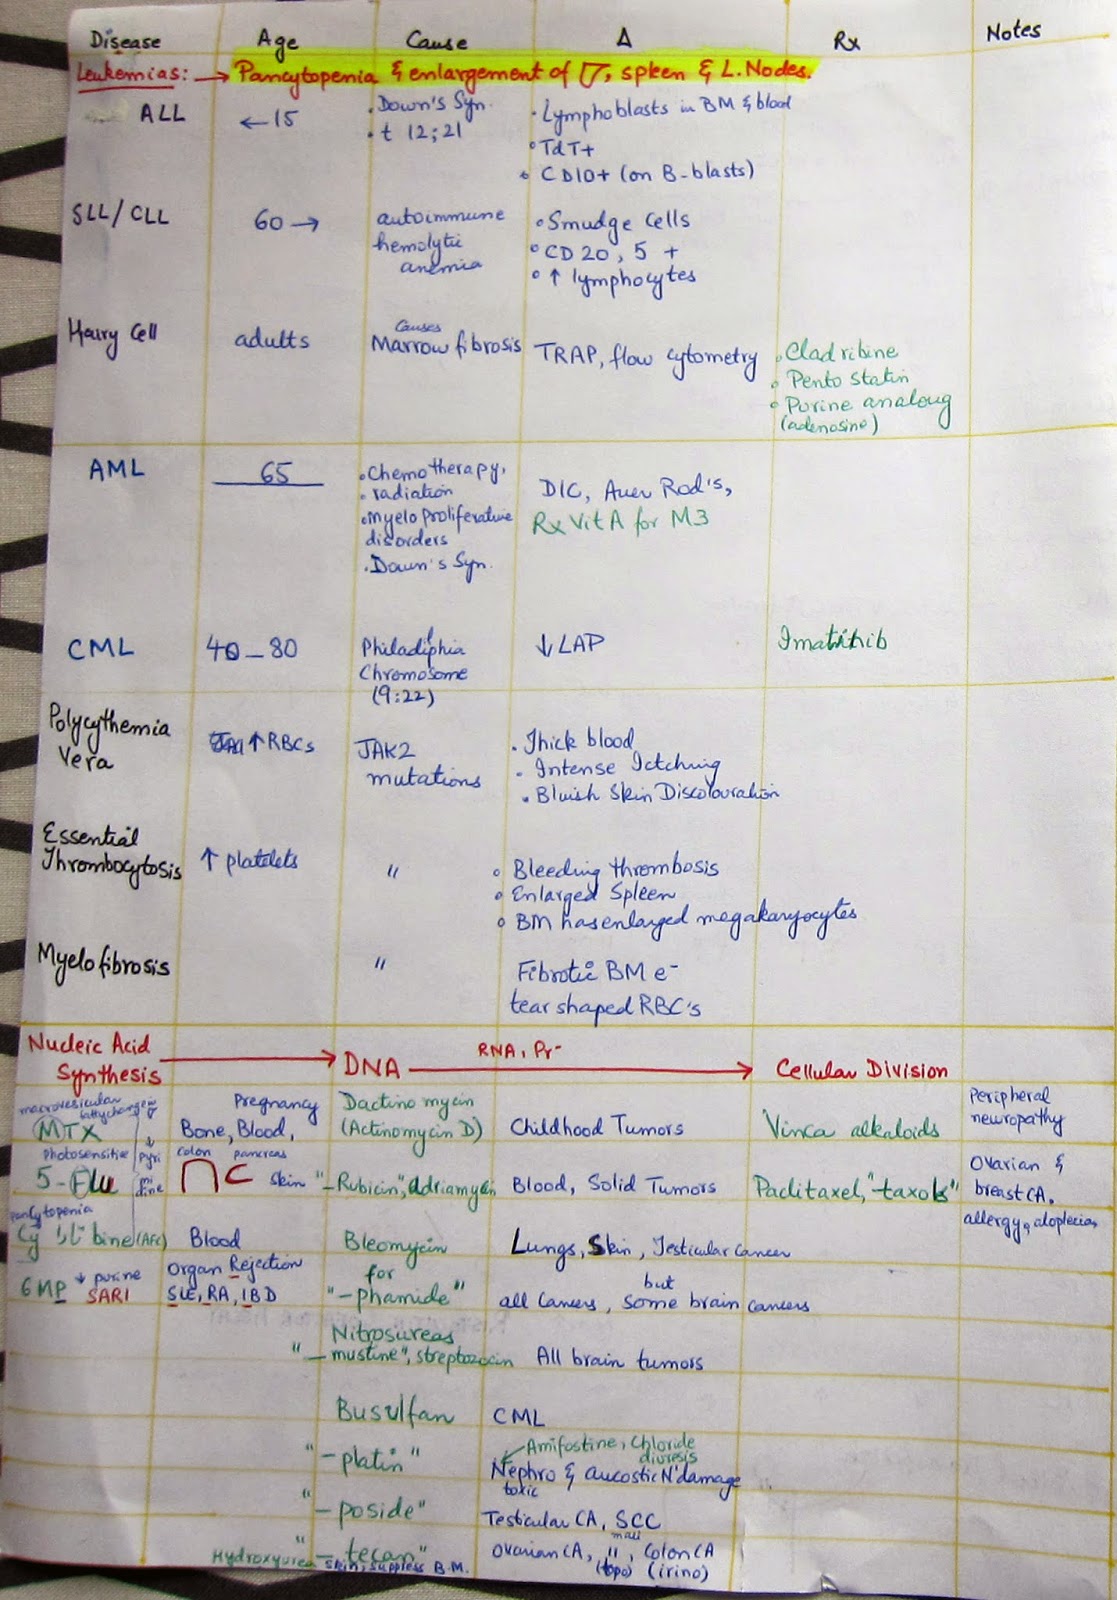 Disease Age Cause Δ Rx Notes
Leukemias: → Pancytopenia & enlargement of , spleen & L. Nodes.
ALL ← 15
• Down's Syn.
• t 12;21
• Lymphoblasts in BM & blood
• TdT+
• CD10+ (on B-blasts)
SLL/CLL 60 →
autoimmune
hemolytic
anemia
• Smudge cells
• CD 20, 5 +
• ↑ lymphocytes
Hairy Cell adults
Causes
Marrow fibrosis
TRAP, flow cytometry
• Cladribine
• Pento statin
• Purine analoug
(adenosine)
AML 65
• Chemotherapy,
• radiation
• myelo proliferative
disorders
• Down's Syn.
DIC, Auer Rod's,
Rx Vit A for M3
CML 40 – 80
Philadlphia
Chromosome
(9:22)
↓ LAP
Imatinib
Polycythemia
Vera
↑ RBCs
JAK2
mutations
• Thick blood
• Intense Ictching
• Bluish Skin Discolouration
Essential
Thrombocytosis
↑ platelets
"
• Bleeding thrombosis
• Enlarged Spleen
• BM has enlarged megakaryocytes
Myelofibrosis
"
Fibrotic BM e-
tear shaped RBC's
Nucleic Acid
Synthesis
→ DNA
RNA, Pr-
→ Cellular Division
macrovesicular
fatty change in
MTX
Pregnancy
Bone, Blood,
Dactino mycin
(Actinomycin D)
Childhood Tumors
Vinca alkaloids
Peripheral
neuropathy
photosensitive
5-Flu
↓
pyri
mi
dine
colon pancreas
skin
"–Rubicin", adriamycin
Blood, Solid Tumors
Paclitaxel, "-taxols"
Ovarian &
breast CA.
allergy, aloplecia,
pancytopenia
Cy bine (AFC)
Blood
Bleomycin
for
Lungs, Skin, Testicular cancer
6MP ↓ purine
SARI
Organ Rejection
SLE, RA, IBD
"–phamide"
but
all Cancers, some brain cancers
Nitrosureas
"–mustine", streptozocin
All brain tumors
Busulfan
CML
"–platin"
Amifostine, Chloride
diuresis
Nephro & aucostic N' damage
toxic
"–poside"
Testicular CA, SCC
"–tecan"
Ovarian CA, ", Colon CA
(topo) (irino)
Hydroxyurea skin, suppress B.M.